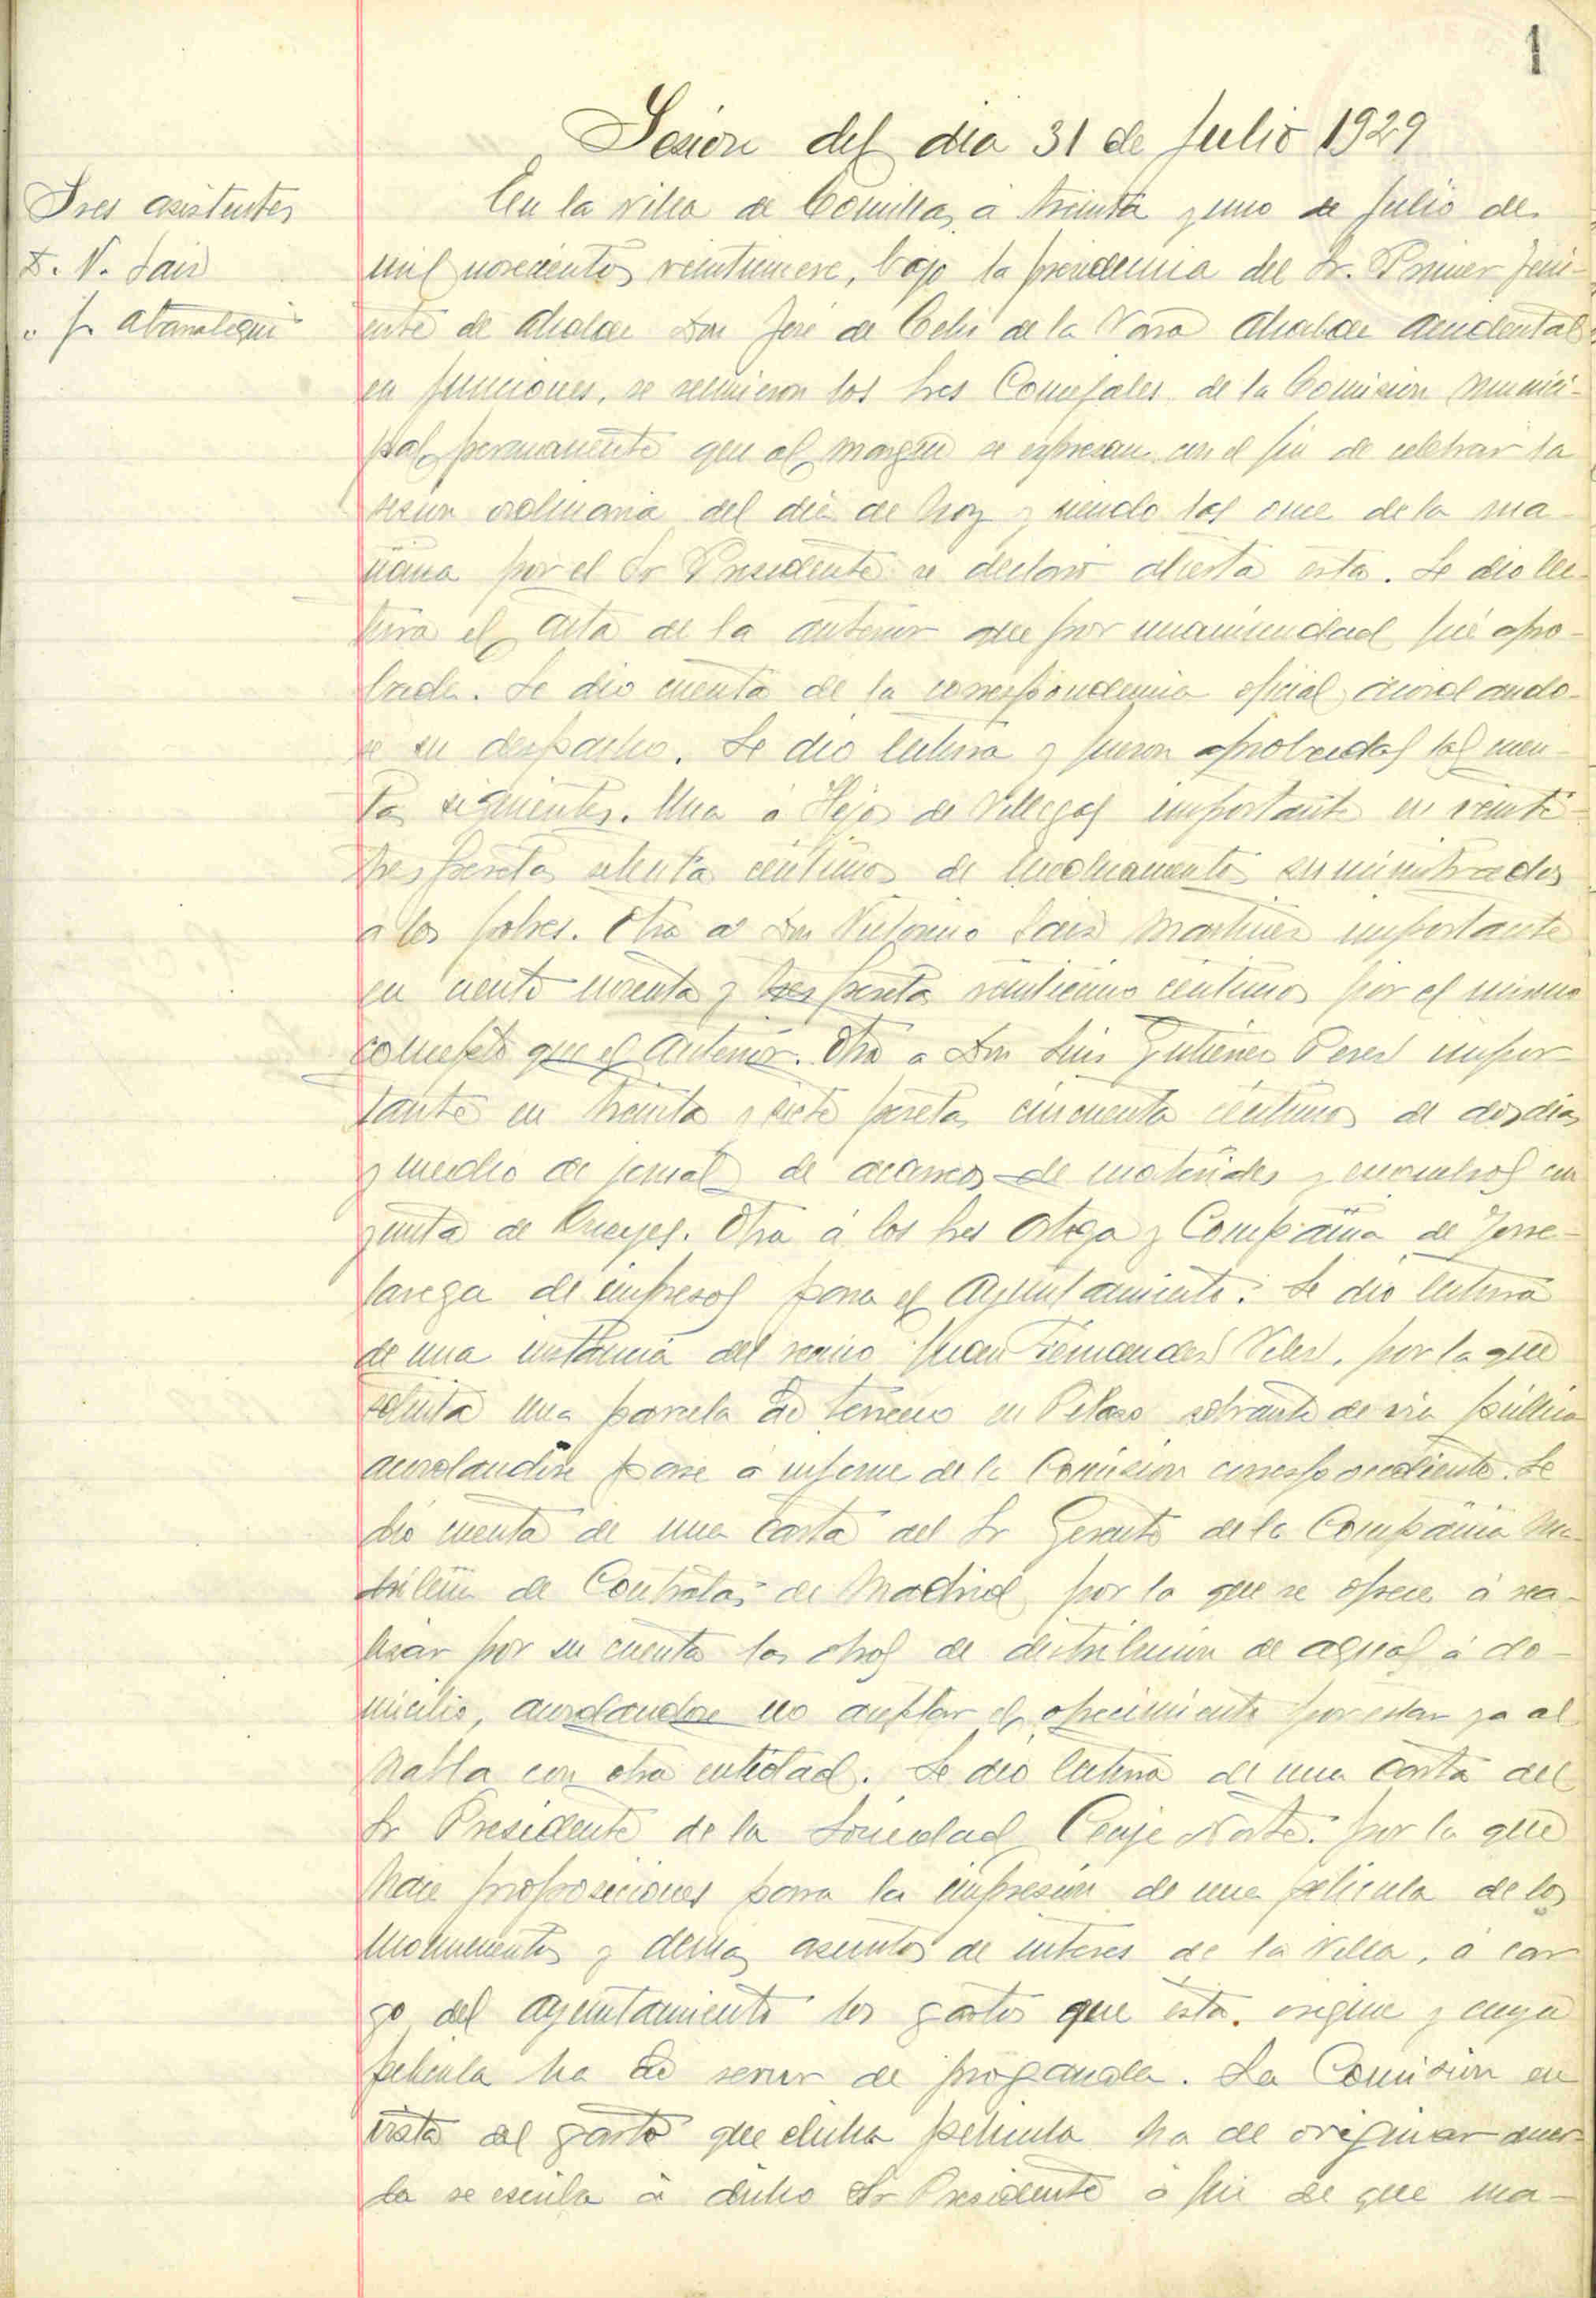 1
Sesion del dia 31 de Julio 1929
Sres asistentes
D. V. Sainz
" J. Abarrategui
En la villa de Comillas, a treinta y uno de Julio de
mil novecientos veintinueve, bajo la presidencia del Sr. Primer Teni-
ente de Alcalde Don José de Celis de la Vara Alcalde Accidental
en funciones, se reunieron los Sres Concejales de la Comision Munici-
pal permanente que al margen se expresan con el fin de celebrar la
sesion ordinaria del dia de hoy y siendo las once de la ma-
ñana por el Sr Presidente se declaró abierta esta. Se dio lec-
tura el acta de la anterior que por unanimidad fué apro-
bada. Se dió cuenta de la correspondencia oficial acordando-
se su despacho. Se dió lectura y fueron aprobadas las cuen-
tas siguientes. Una á Hijos de Villegas importante en veinti-
tres pesetas setenta centimos de medicamentos suministrados
a los pobres. Otra a Don Victorino Sainz Martinez importante
en ciento noventa y tres pesetas veinticinco centimos por el mismo
concepto que el anterior. Otra a Don Luis Gutierrez Perez impor-
tante en treinta y siete pesetas cincuenta centimos de dos dias
y medio de jornal de acarreo de materiales y escombros con
yunta de bueyes. Otra á los Sres Ortega y Compañia de Torre-
lavega de impresos para el Ayuntamiento. Se dió lectura
de una instancia del vecino Juan Fernandez Velez, por la que
solicita una parcela de terreno en sobrante de via pública
acordandose pase á informe de la Comision correspondiente. Se
dió cuenta de una carta del Sr Gerente de la Compañia Ma-
drileña de Contratas de Madrid por la que se ofrece á rea-
lizar por su cuenta las obras de distribucion de aguas á do-
micilio, acordandose no aceptar el ofrecimiento por estar ya al
habla con otra entidad. Se dió lectura de una carta del
Sr Presidente de la Sociedad Norte. por la que
hace proposiciones para la impresion de una pelicula de los
Monumentos y demas asuntos de interes de la Villa, á car
go del Ayuntamiento los gastos que esta origine y cuya
pelicula ha de servir de propaganda. La Comision en
vista del gasto que dicha pelicula ha de originar acuer-
da se escriba á dicho Sr Presidente á fin de que ma-